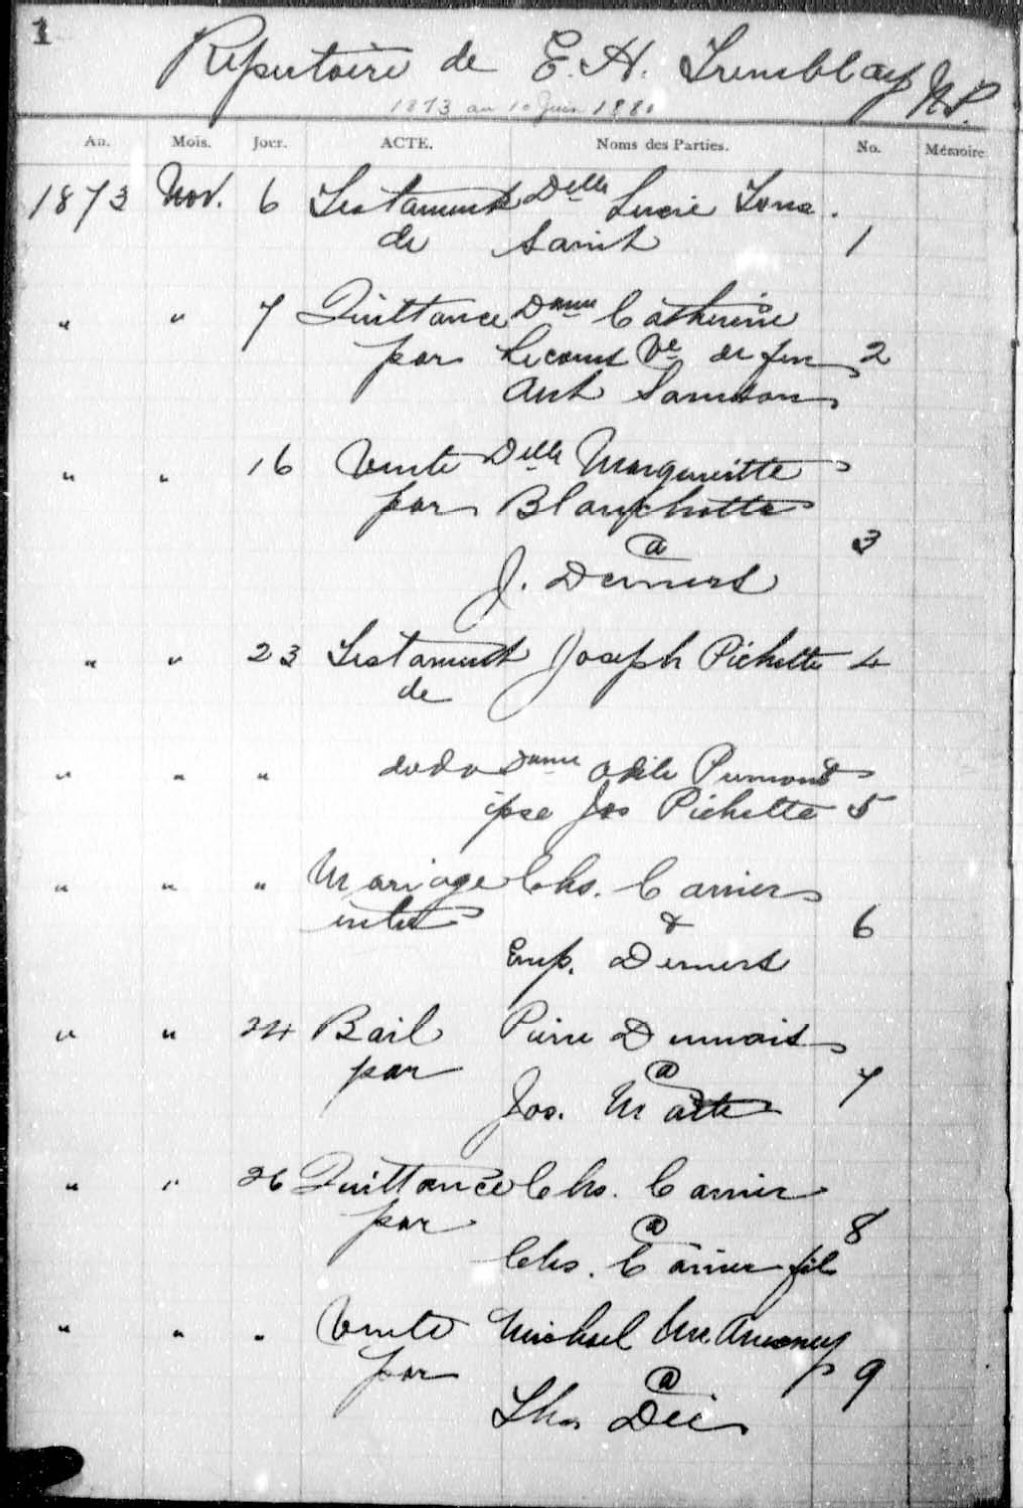 1
Repertoire de E. H. Tremblay N.P.
1873 au 10 Juin 1880
An. Mois. Jour. ACTE. Noms des Parties. No. Mémoire
1873 Nov. 6 Testament Delle Lucie
de Saint 1
" " 7 Quittance Dame Catherine
par Lecomt Ve de feu 2
Ant Samson
" " 16 Vente Delle Margueritte
par Blanchette
@ 3
J. Demers
" " 23 Testament Joseph Pichette 4
de
" " " dodo Dame Odile
Jos Pichette 5
" " " Mariage Chs. Carrier
entre & 6
Emp. Demers
" " 24 Bail Pierre Dumais
par @ 7
Jos. Matte
" " 26 Quittance Chs. Carrier
par @ 8
Chs. Carrier fils
" " " Vente Michael
par @ 9
Ths